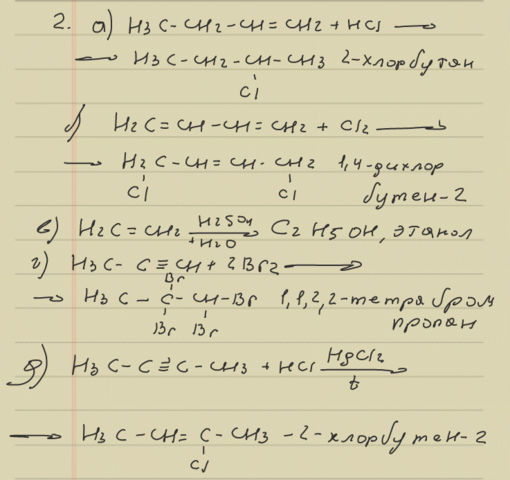 2. а) H3C-CH2-CH=CH2 + HCl ⟶
⟶ H3C-CH2-CH-CH3 2-хлорбутан
Cl
б) H2C=CH-CH=CH2 + Cl2 ⟶
⟶ H2C-CH=CH-CH2 1,4-дихлор
Cl Cl бутен-2
в) H2C=CH2 H2SO4 +H2O ⟶ C2H5OH, этанол
г) H3C-C≡CH + 2Br2 ⟶
Br
⟶ H3C-C-CH-Br 1,1,2,2-тетрабром
Br Br пропан
д) H3C-C≡C-CH3 + HCl HgCl2 t ⟶
⟶ H3C-CH=C-CH3 - 2-хлорбутен-2
Cl